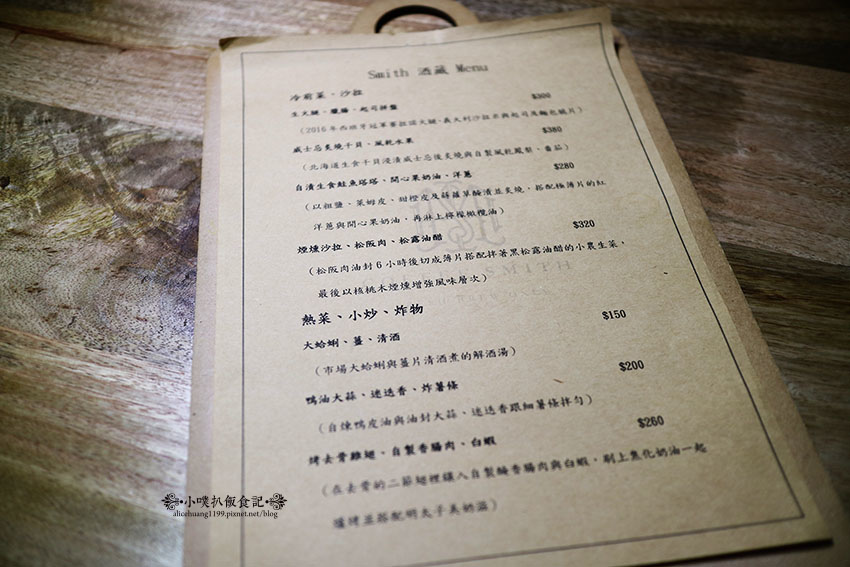 Smith 酒藏 Menu
冷前菜、沙拉
生火腿、臘腸、起司拼盤 $300
(2016年西班牙冠軍賽拉諾火腿、義大利沙拉米與起司及麵包脆片)
威士忌炙燒干貝、風乾水果 $380
(北海道生食干貝浸漬威士忌後炙燒與自製風乾鳳梨、番茄)
自漬生食鮭魚塔塔、開心果奶油、洋蔥 $280
(以粗鹽、萊姆皮、甜橙皮及蒔蘿草醃漬並炙燒,搭配極薄片的紅
洋蔥與開心果奶油,再淋上檸檬橄欖油)
煙燻沙拉、松阪肉、松露油醋 $320
(松阪肉油封6小時後切成薄片搭配拌著黑松露油醋的小農生菜,
最後以核桃木煙燻增強風味層次)
SMITH
熱菜、小炒、炸物
大蛤蜊、薑、清酒 $150
(市場大蛤蜊與薑片清酒煮的解酒湯)
鴨油大蒜、迷迭香、炸薯條 $200
(自煉鴨皮油與油封大蒜、迷迭香跟細薯條拌勻)
烤去骨雞翅、自製香腸肉、白蝦 $260
(在去骨的二節翅裡鑲入自製鹹香腸肉與白蝦,刷上焦化奶油一起
爐烤並搭配明太子美奶滋)
小噗扒飯食記
alicehuang1199.pixnet.net/blog